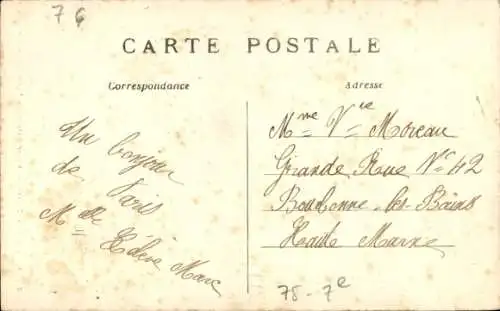 76
CARTE POSTALE
Correspondance
Adresse
Un bonjour
de Paris
Melle
Marc
Mme Vve Moreau
Grande Rue No 42
Bourbonne-les-Bains
Haute Marne
75-7e